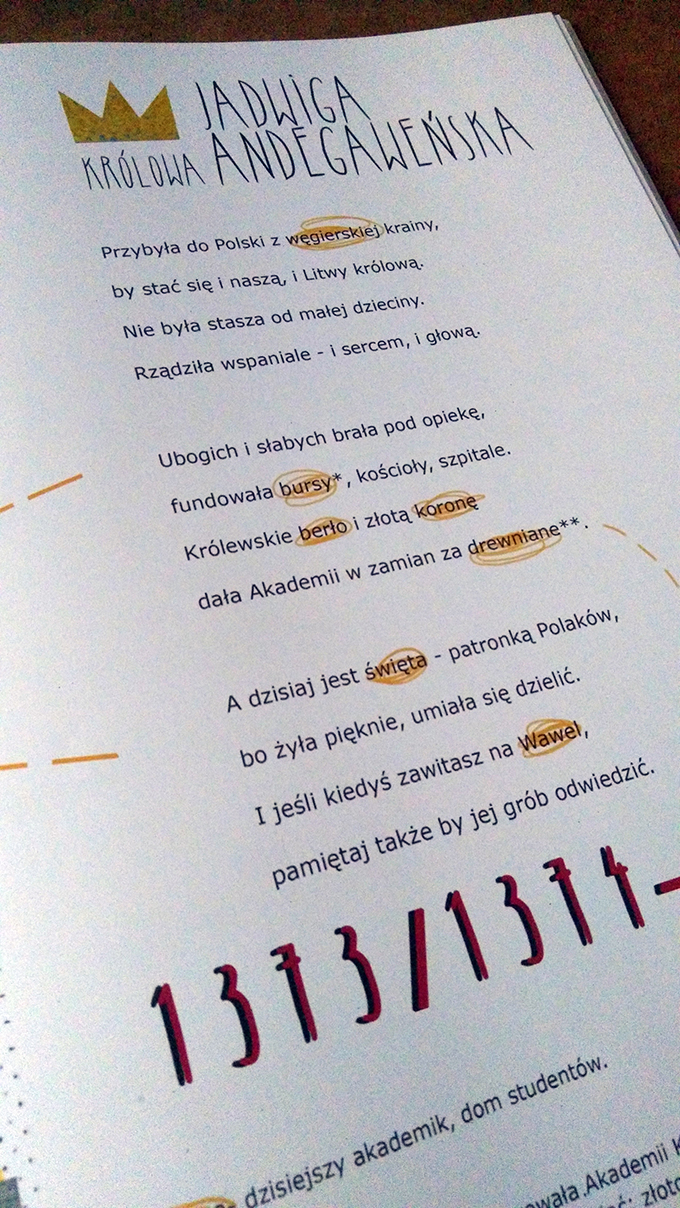 JADWIGA
KRÓLOWA ANDEGAWEŃSKA
Przybyła do Polski z węgierskiej krainy,
by stać się i naszą, i Litwy królową.
Nie była stasza od małej dzieciny.
Rządziła wspaniale - i sercem, i głową.
Ubogich i słabych brała pod opiekę,
fundowała bursy*, kościoły, szpitale.
Królewskie berło i złotą koronę
dała Akademii w zamian za drewniane**.
A dzisiaj jest święta - patronką Polaków,
bo żyła pięknie, umiała się dzielić.
I jeśli kiedyś zawitasz na Wawel,
pamiętaj także by jej grób odwiedzić.
1373/1374-
- dzisiejszy akademik, dom studentów.
Akademii